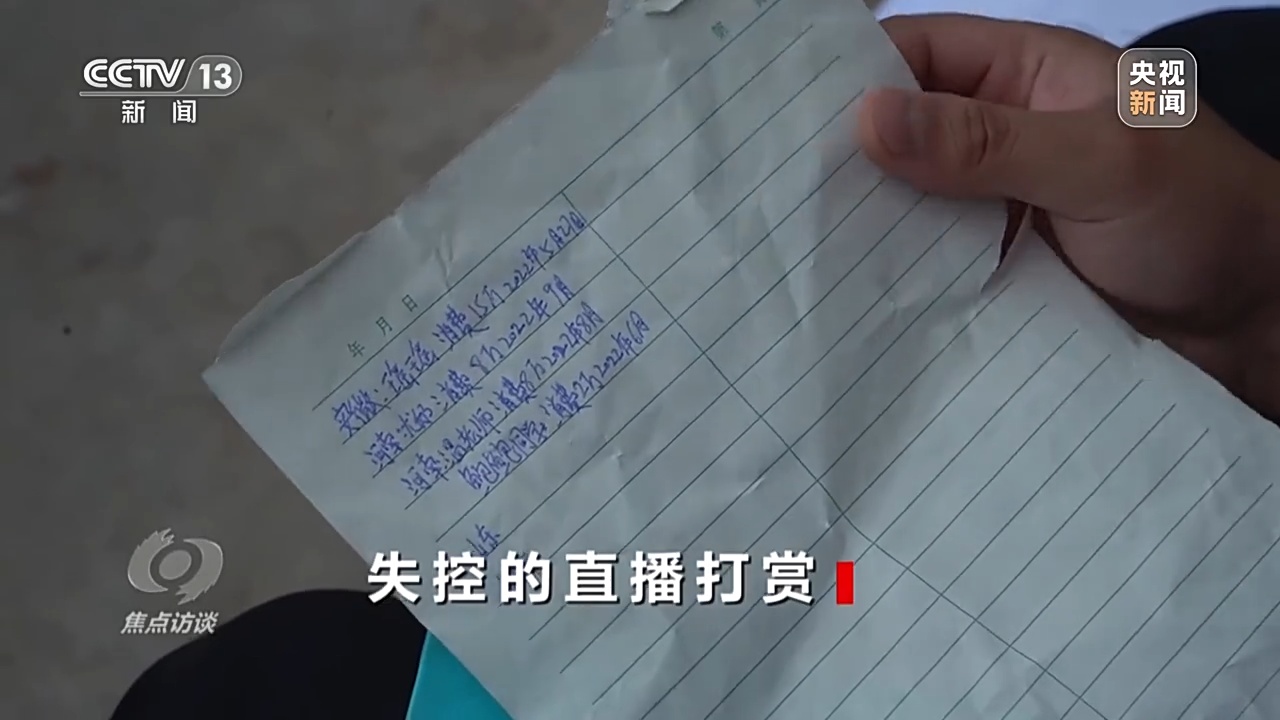 CCTV 13
新闻
央视
新闻
年 月 日
安徽:瑶瑶 消费15万2022年5月27日
河南:尤娜:消费8万2022年9月
河南:温柷师:消费8万2022年8月
鲍鲍同学:消费2万2022年6月
山东
失控的直播打赏
焦点访谈